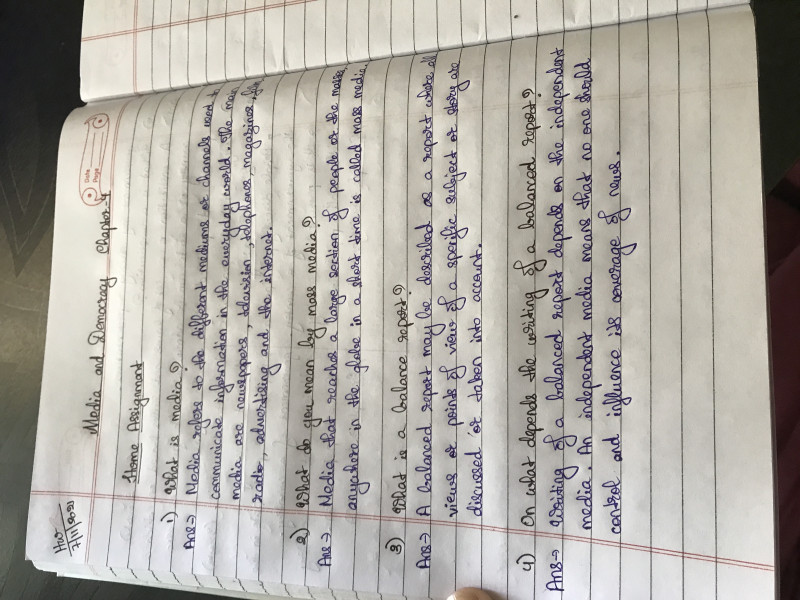 HW
7/11/2021
Date
Page
Media and Democracy Chapter-4
Home Assignment
1) What is media?
Ans-> Media refers to the different mediums or channels used to
communicate information in the everyday world. The main
media are newspapers, television, telephones, magazines,
radio, advertising and the internet.
2) What do you mean by mass media?
Ans-> Media that reaches a large section of people or the masses
anywhere in the globe in a short time is called mass media.
3) What is a balance report?
Ans-> A balanced report may be described as a report where all
views or points of view of a specific subject or story are
discussed or taken into account.
4) On what depends the writing of a balanced report?
Ans-> Writing of a balanced report depends on the independent
media. An independent media means that no one should
control and influence its coverage of news.